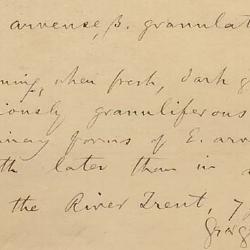 arvense, β. granulat
ning, when fresh, dark g
iously granuliferous
inary forms of E. arv
th later than in
the River Trent, 7